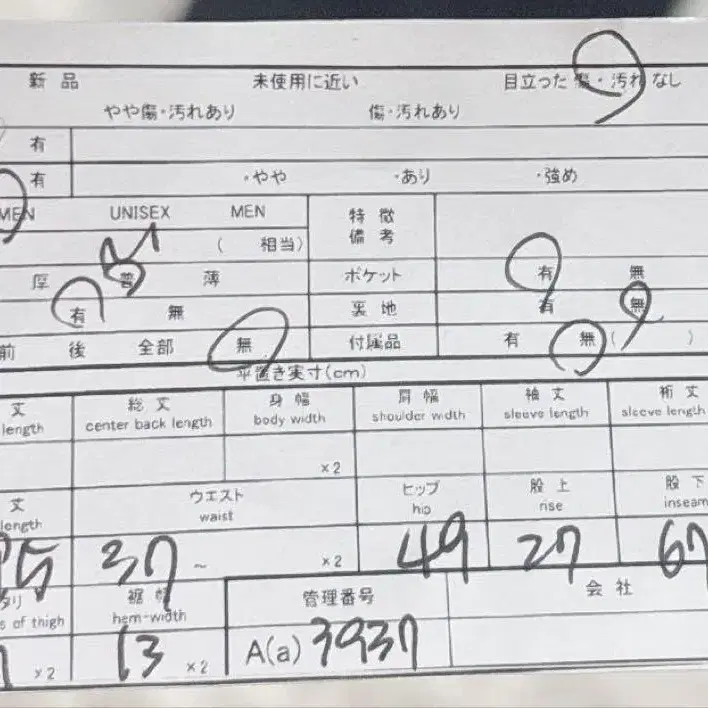 新品 未使用に近い 目立った傷・汚れなし
やや傷・汚れあり 傷・汚れあり
有
有 ・やや ・あり ・強め
MEN UNISEX MEN 特徴
備考
M
( 相当)
厚 普 薄 ポケット 有 無
有 無 裏地 有 無
前 後 全部 無 付属品 有 無 ( )
平置き実寸(cm)
丈 総丈 身幅 肩幅 袖丈 裄丈
length center back length body width shoulder width sleeve length sleeve length
×2
丈 ウエスト ヒップ 股上 股下
length waist hip rise inseam
95 37 ~ ×2 49 27 67
タリ 裾幅 管理番号 会社
s of thigh hem-width
×2 13 ×2 A(a) 3937